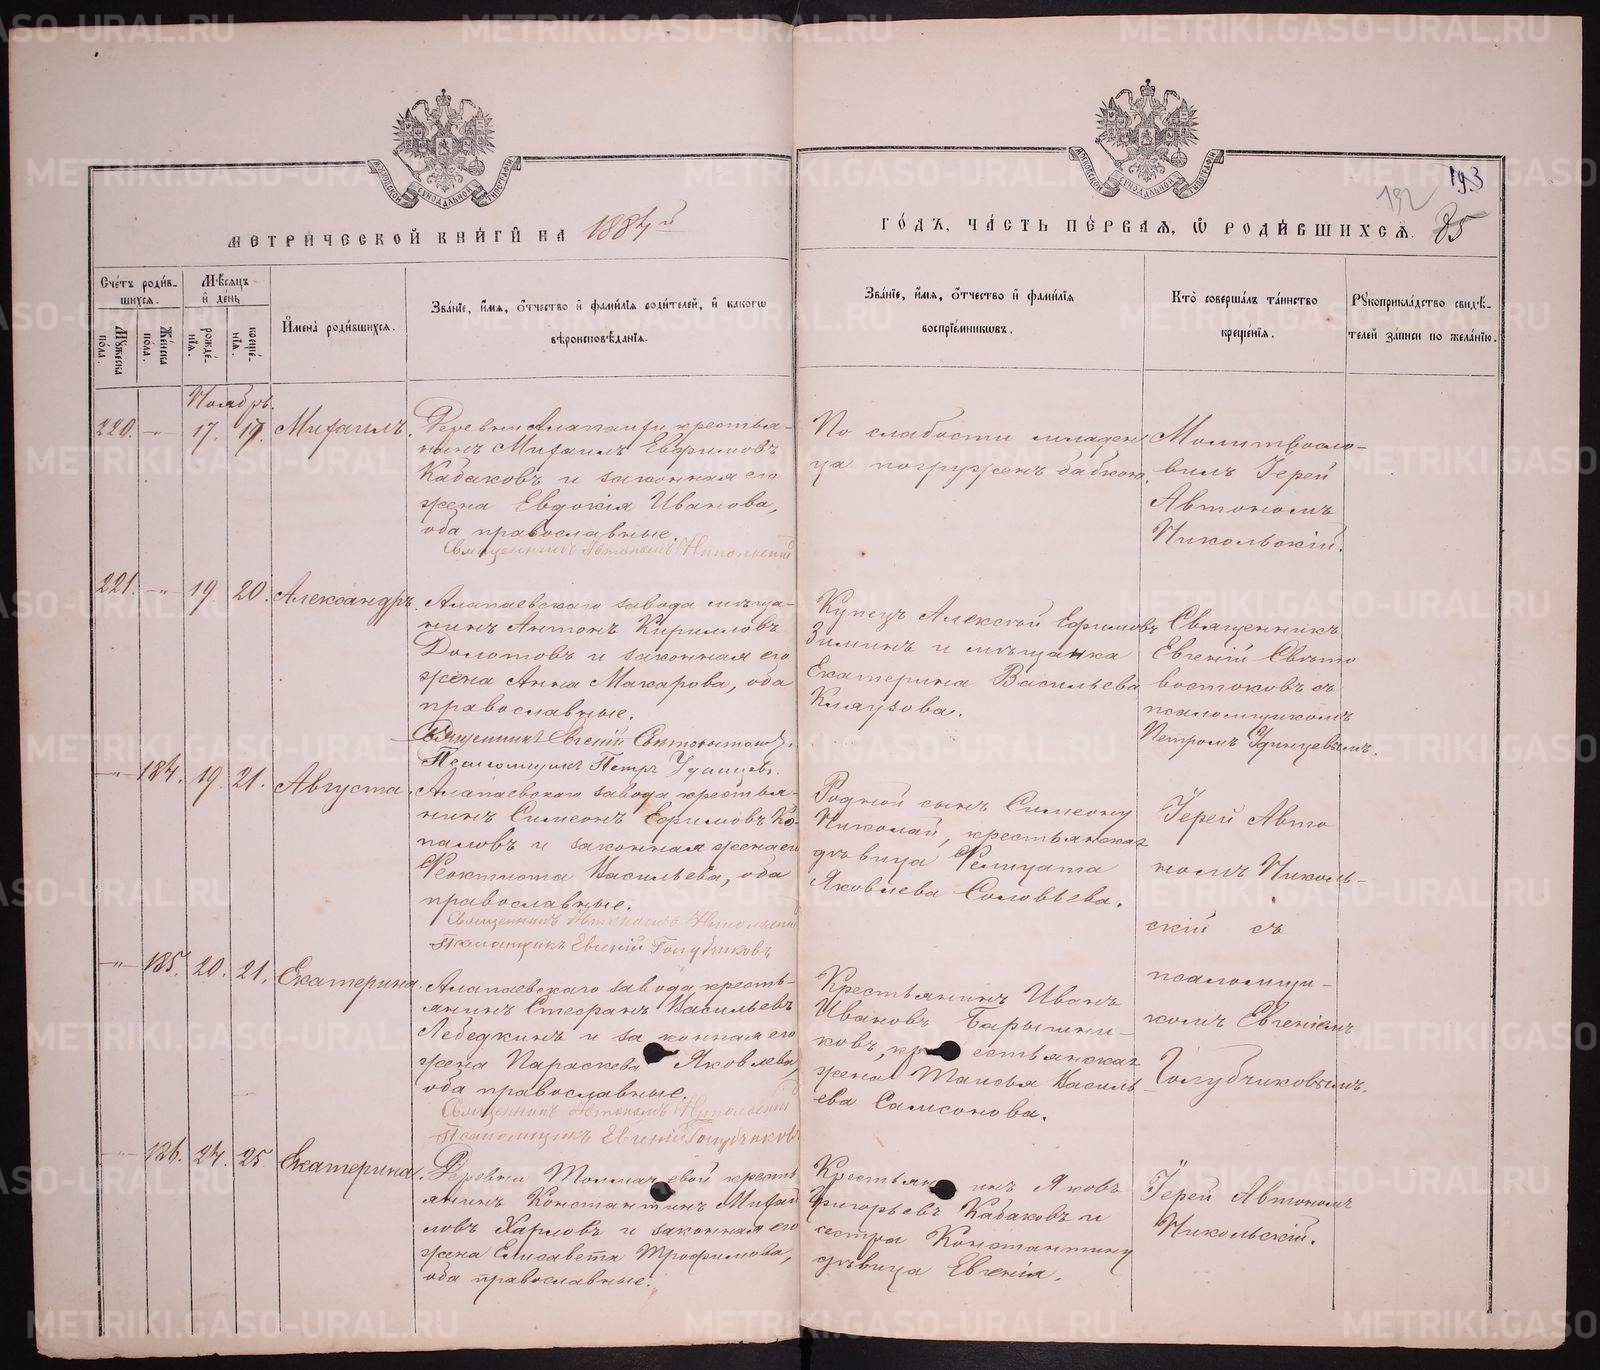 МЕТРИЧЕСКОЙ КНИГИ НА 1887й
ГОДЪ, ЧАСТЬ ПЕРВАЯ, Ѡ РОДИВШИХСЯ.
192
193
85
Счетъ родив-
шихся.
Мѣсяцъ
и день
Мужеска
пола.
Женска
пола.
рожде-
нія.
креще-
нія.
Имена родившихся.
Званіе, имя, отчество и фамилія родителей, и какого
вѣроисповѣданія.
Званіе, имя, отчество и фамилія
воспріемниковъ.
Кто совершалъ таинство
крещенія.
Рукоприкладство свидѣ-
телей записи по желанію.
Ноябрь.
220. -"- 17. 17. Михаилъ.
Деревни Алапаихи крестья-
нинъ Михаилъ Ефимовъ
Кабаковъ и законная его
жена Евдокія Иванова,
оба православные.
Священникъ Автономъ Никольский
По слабости младен
ца погруженъ бабкою.
Молитвосло-
вилъ Іерей
Автономъ
Никольскій.
221. -"- 19. 20. Александръ.
Алапаевскаго завода мѣща-
нинъ Антонъ Кирилловъ
Долотовъ и законная его
жена Анна Макарова, оба
православные.
Священникъ Евгеній Свѣтовостоковъ.
Псаломщикъ Петръ Удинцевъ.
Купецъ Алексѣй Ефимовъ
Зиминъ и мѣщанка
Екатерина Васильева
Клаузова.
Священникъ
Евгеній Свѣто
востоковъ съ
псаломщикомъ
Петромъ Удинцевымъ.
-"- 184. 19. 21. Августа.
Алапаевскаго завода крестья-
нинъ Симеонъ Ефимовъ Ко-
паловъ и законная жена его
Феоктиста Васильева, оба
православные.
Священникъ Автономъ Никольский
Псаломщикъ Евгеній Голубчиковъ
Родной сынъ Симеону
Николай, крестьянская
дѣвица Фелицата
Яковлева Соловьева.
Іерей Авто
номъ Николь-
скій съ
псаломщи-
комъ Евгеніемъ
Голубчиковымъ.
-"- 185. 20. 21. Екатерина.
Алапаевскаго завода кресть-
янинъ Стефанъ Васильевъ
Лебедкинъ и законная его
жена Параскева Яковлева,
оба православные.
Священникъ Автономъ Никольский
Псаломщикъ Евгеній Голубчиковъ
Крестьянинъ Иванъ
Ивановъ Барышни-
ковъ, крестьянская
жена Таисья Василь
ева Самсонова.
186. 24. 25 Екатерина.
Деревни Толмачевой кресть
янинъ Константинъ Михаи
ловъ Харловъ и законная его
жена Елисавета Трофимова,
оба православные.
Крестьянинъ Яковъ
Григорьевъ Кабаковъ и
сестра Константину
дѣвица Евгенія.
Іерей Автономъ
Никольскій.
METRIKI.GASO-URAL.RU